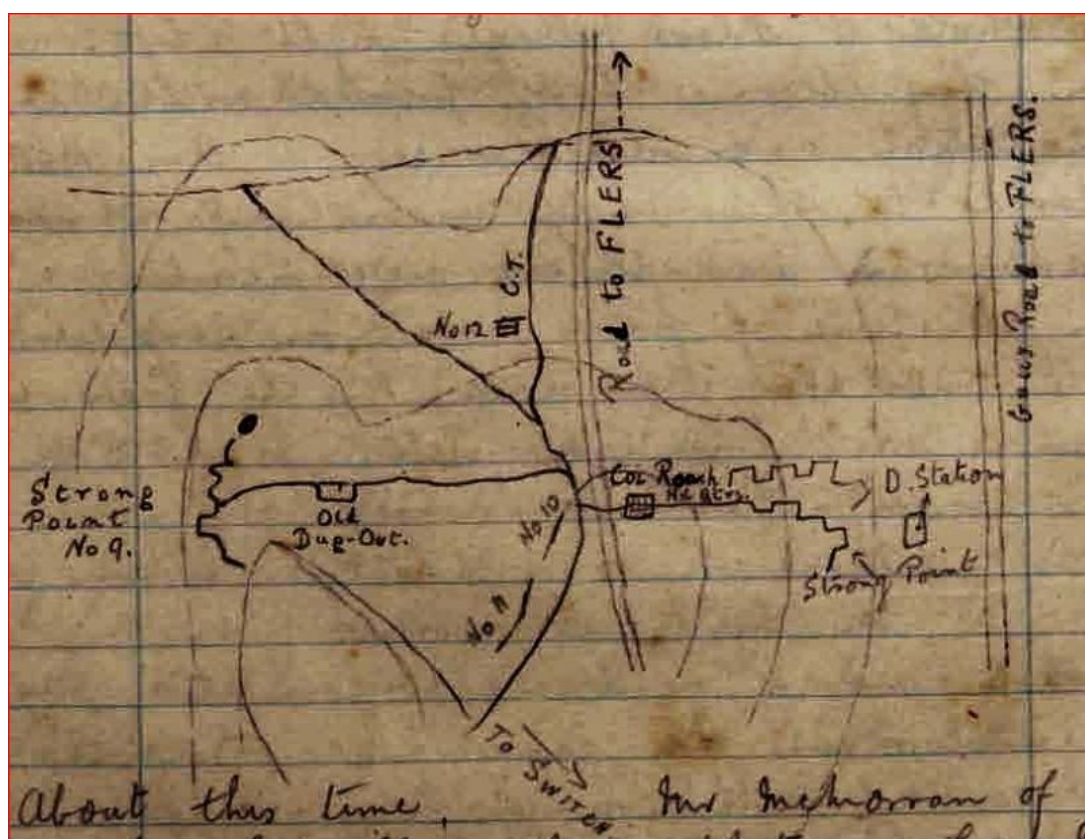 Road to FLERS
Good Road to FLERS.
C.T.
No 12
Strong
Point
No 9.
Old
Dug-Out.
No 10
No 11
Hd Qtrs.
D. Station
Strong Point
To SWITCH
About this time, Mr of